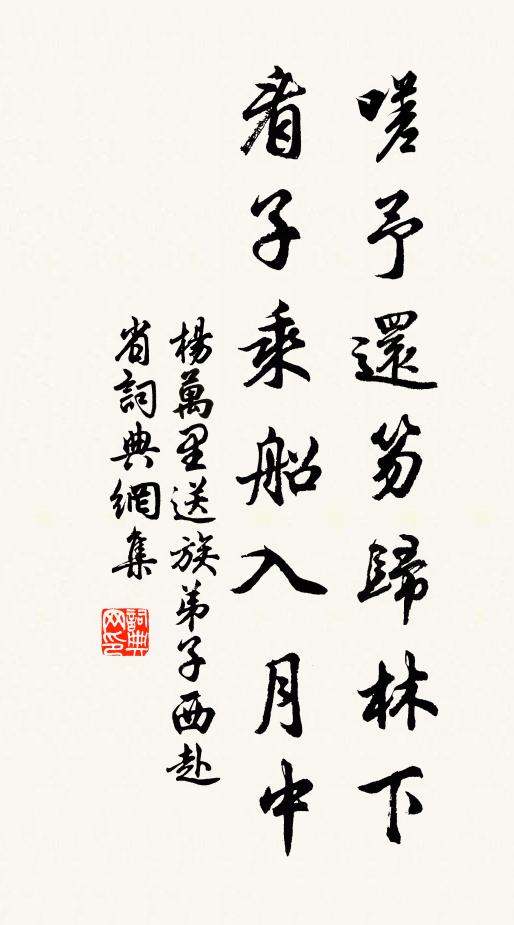 嗟予還笏歸林下
看子乘船入月中
楊萬里送族弟子西赴
省詞典網集
詞典網印